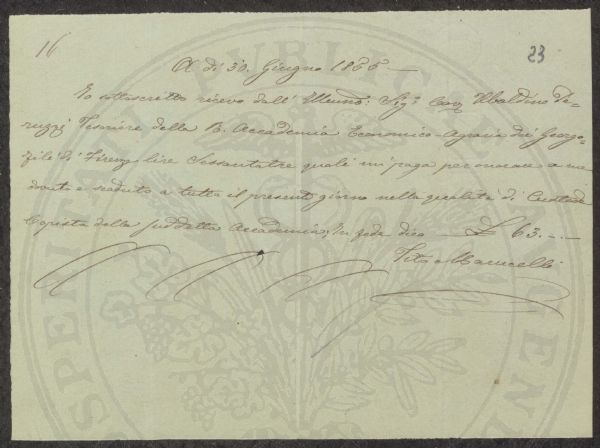 16
23
A dì 30. Giugno 1865 —
Io sottoscritto ricevo dall' Illmo: Sigr. Cav Ubaldino Pe-
ruzzi Tesoriere della R. Accademia Economico-Agraria dei Georgo-
fili di Firenze lire Sessantatre quali mi paga per onorario a me
dovuto e scaduto a tutto il presente giorno nella qualità di Custode
Copista della suddetta Accademia, In fede dico — £ 63. —
Tito Marucelli